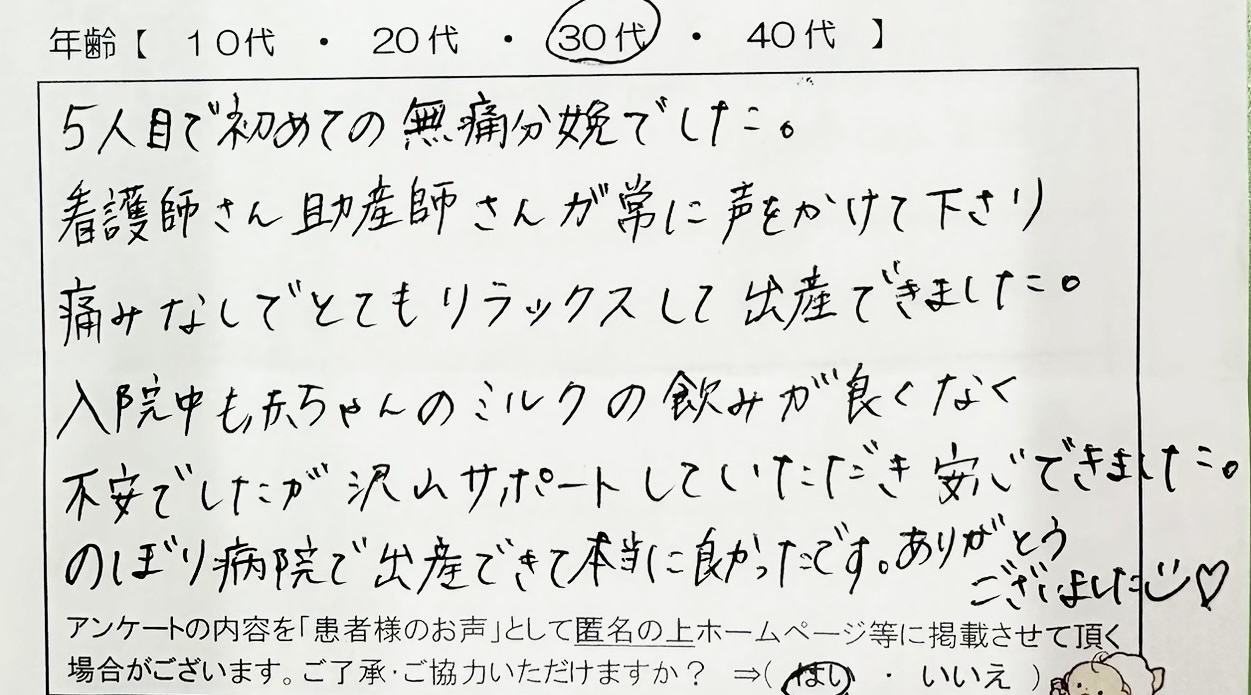 年齢【 10代 ・ 20代 ・ 30代 ・ 40代 】
5人目で初めての無痛分娩でした。
看護師さん助産師さんが常に声をかけて下さり
痛みなしでとてもリラックスして出産できました。
入院中も赤ちゃんのミルクの飲みが良くなく
不安でしたが沢山サポートしていただき安心できました。
のぼり病院で出産できて本当に良かったです。ありがとう
ございました♡
アンケートの内容を「患者様のお声」として匿名の上ホームページ等に掲載させて頂く
場合がございます。ご了承・ご協力いただけますか？ ⇒( はい ・ いいえ )